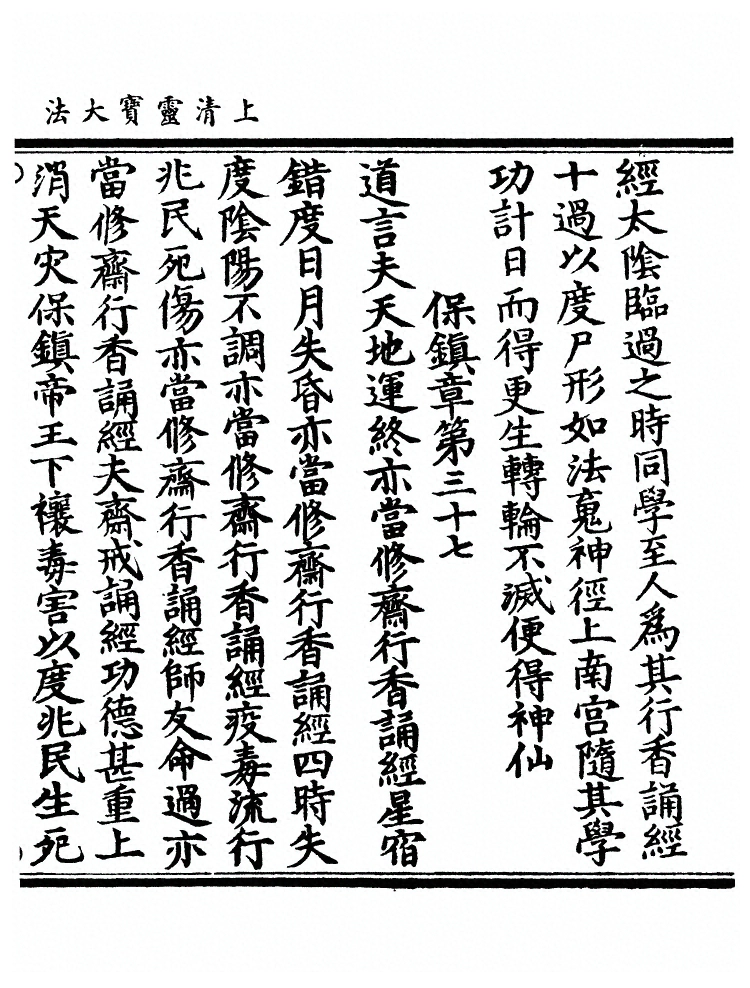 上清靈寶大法
經太陰臨過之時同學至人爲其行香誦經
十過以度尸形如法䰟神徑上南宫隨其學
功計日而得更生轉輪不滅便得神仙
保鎮章第三十七
道言夫天地運終亦當修齋行香誦經星宿
錯度日月失昏亦當修齋行香誦經四時失
度陰陽不調亦當修齋行香誦經疫毒流行
兆民死傷亦當修齋行香誦經師友命過亦
當修齋行香誦經夫齋戒誦經功德甚重上
消天灾保鎮帝王下禳毒害以度兆民生死